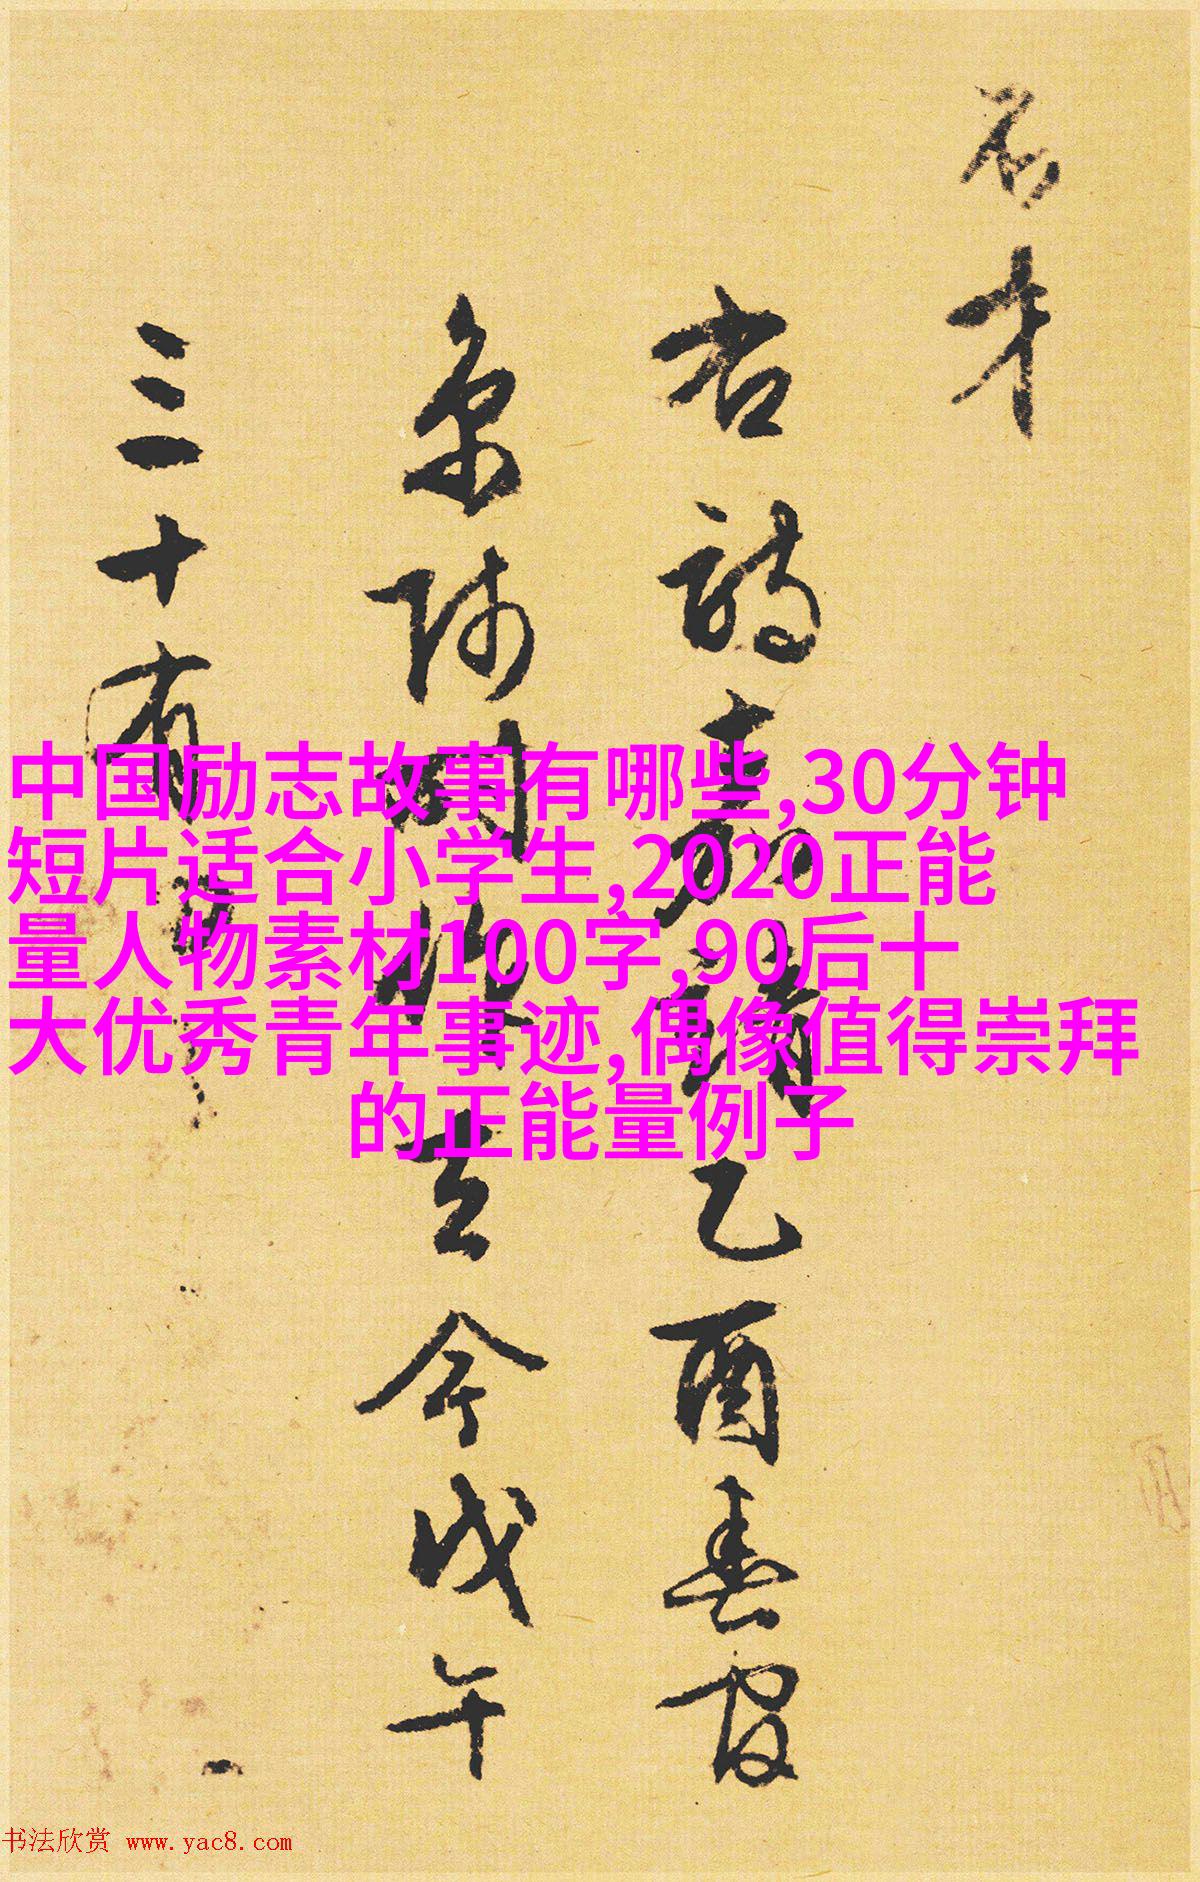 名才
右詩嘉靖乙酉春寓
京師時作去今戊午
三十有
中国励志故事有哪些,30分钟
短片适合小学生,2020正能
量人物素材100字,90后十
大优秀青年事迹,偶像值得崇拜
的正能量例子
书法欣赏 www.yac8.com